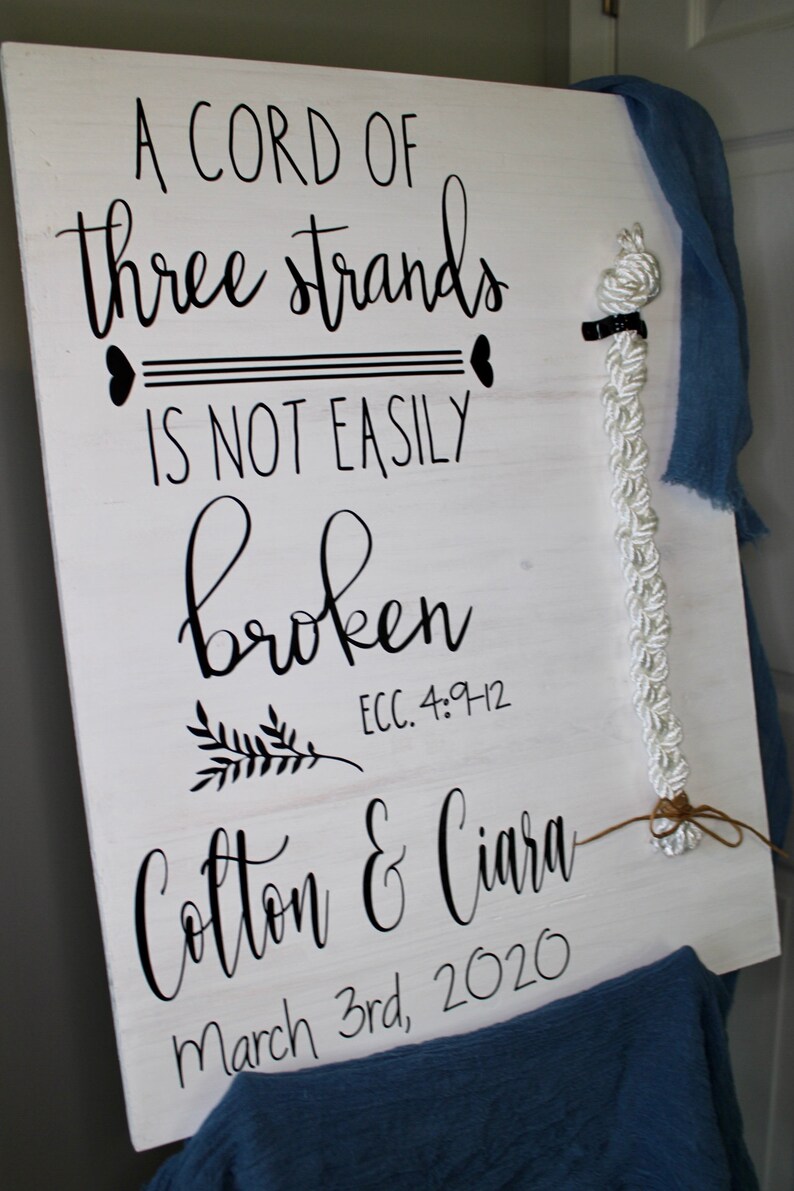 A CORD OF
three strands
IS NOT EASILY
broken
ECC. 4:9-12
Colton & Ciara
March 3rd, 2020